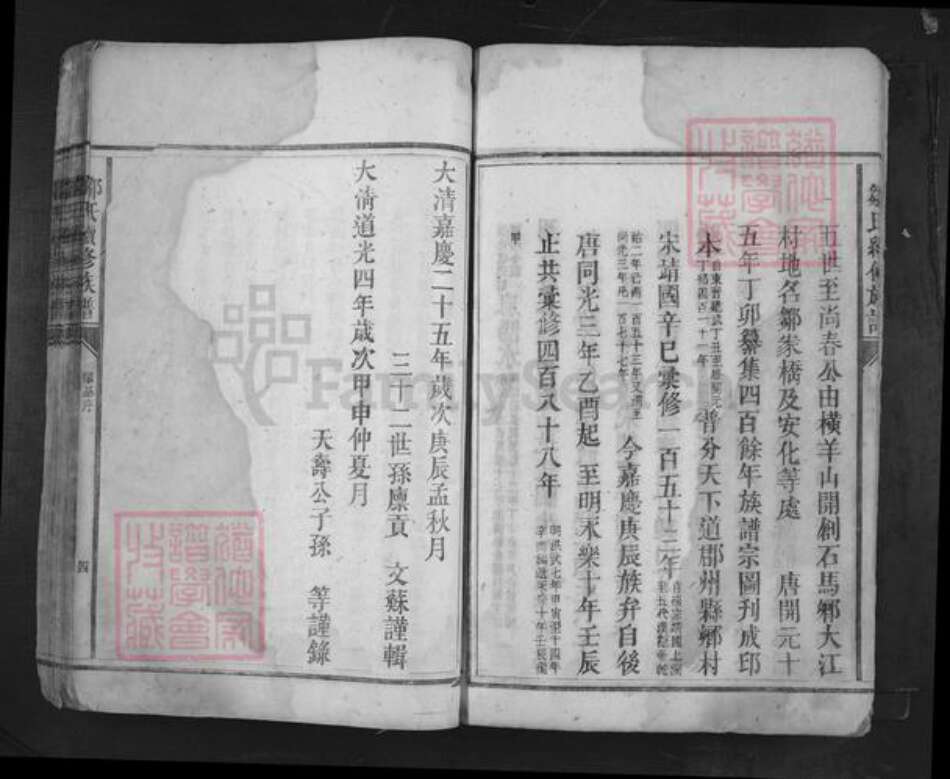 五世至尚春公由橫羊山開創石馬鄉大江
村地名鄒家橋及安化等處 唐開元十
五年丁卯纂集四百餘年族譜宗圖刋成印
本 普分天下道郡州縣鄉村
宋靖國辛巳彚修一百五十二年
今嘉慶庚辰族弁自後
唐同光三年乙酉起 至明永樂十年壬辰
止共彚修四百八十八年
大清嘉慶二十五年歲次庚辰孟秋月
三十二世孫廩貢 文蘇謹輯
大淸道光四年歲次甲申仲夏月
天壽公子孫 等謹錄
四
FamilySearch